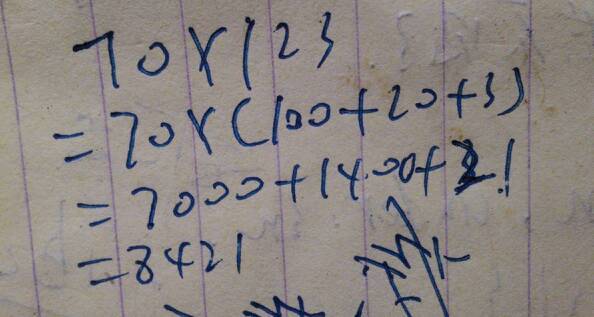 70×123
=70×(100+20+3)
=7000+1400+21
=8421